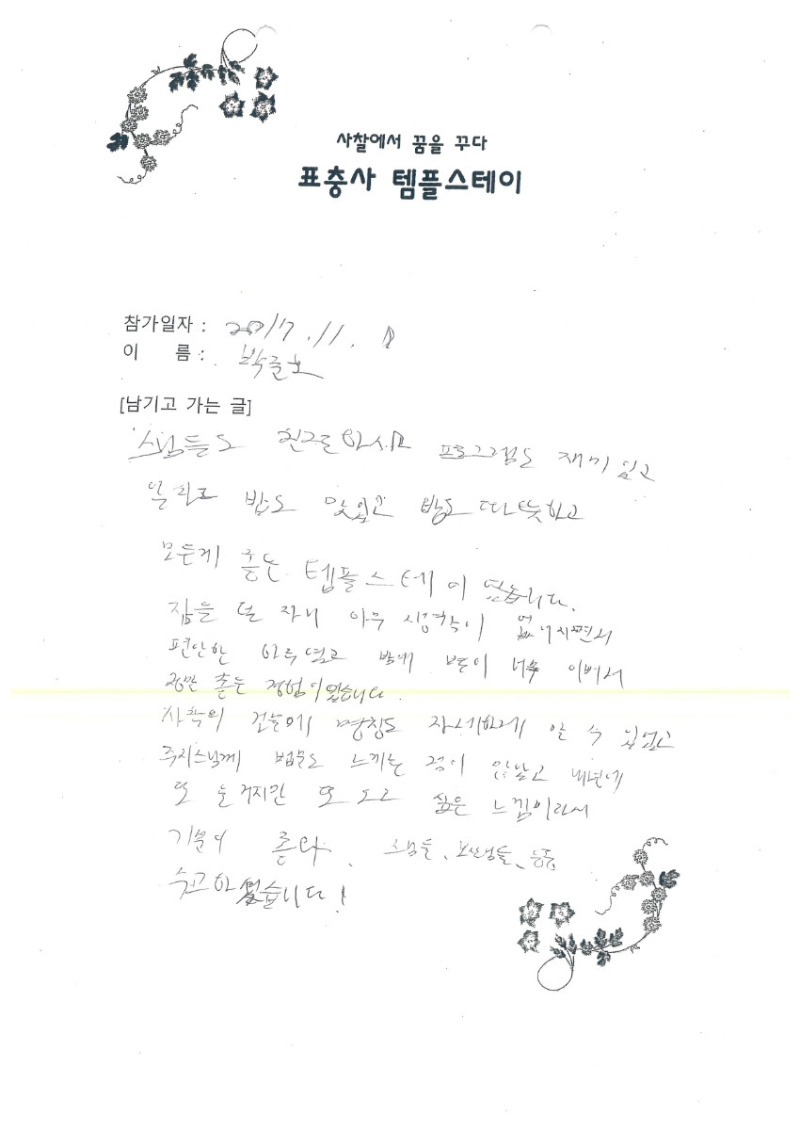 사찰에서 꿈을 꾸다
표충사 템플스테이
참가일자 : 2017. 11.
이 름 : 박
[남기고 가는 글]
스님들도 친근하시고 프로그램도 재미있고
밥도 맛있고 방도 따뜻하고
모든게 좋은 템플스테이 였습니다.
잠을 잘 자니 아무 생각이
편안한 하루였고 밤에 별이 너무 이뻐서
좋은 경험이었습니다.
사찰의 건물에 명칭도 자세하게 알 수 있었고
주지스님께 법문도 느끼는 점이 많았고 내년에
또 오고 싶은 느낌이라서
기분이 좋다. 스님들, 보살님들,
수고하셨습니다!